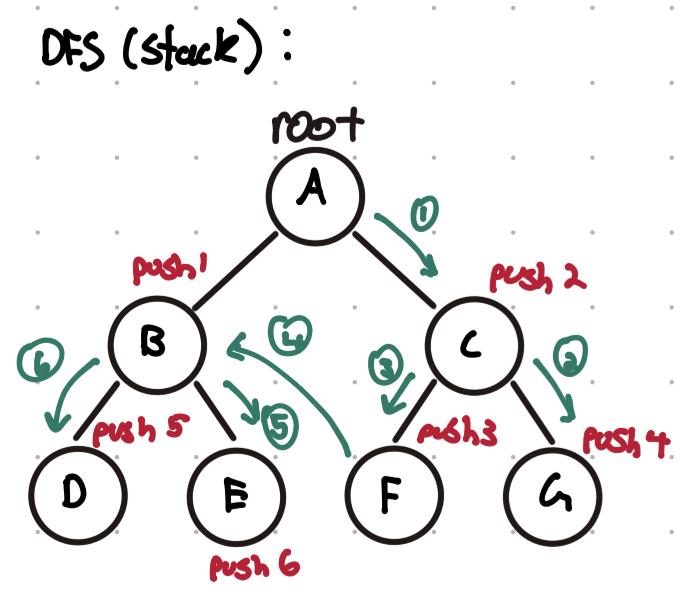 DFS (stack) :
root
A
①
push 1
push 2
B
④
C
⑥
③
②
push 5
⑤
push 3
push 4
D
E
F
G
push 6